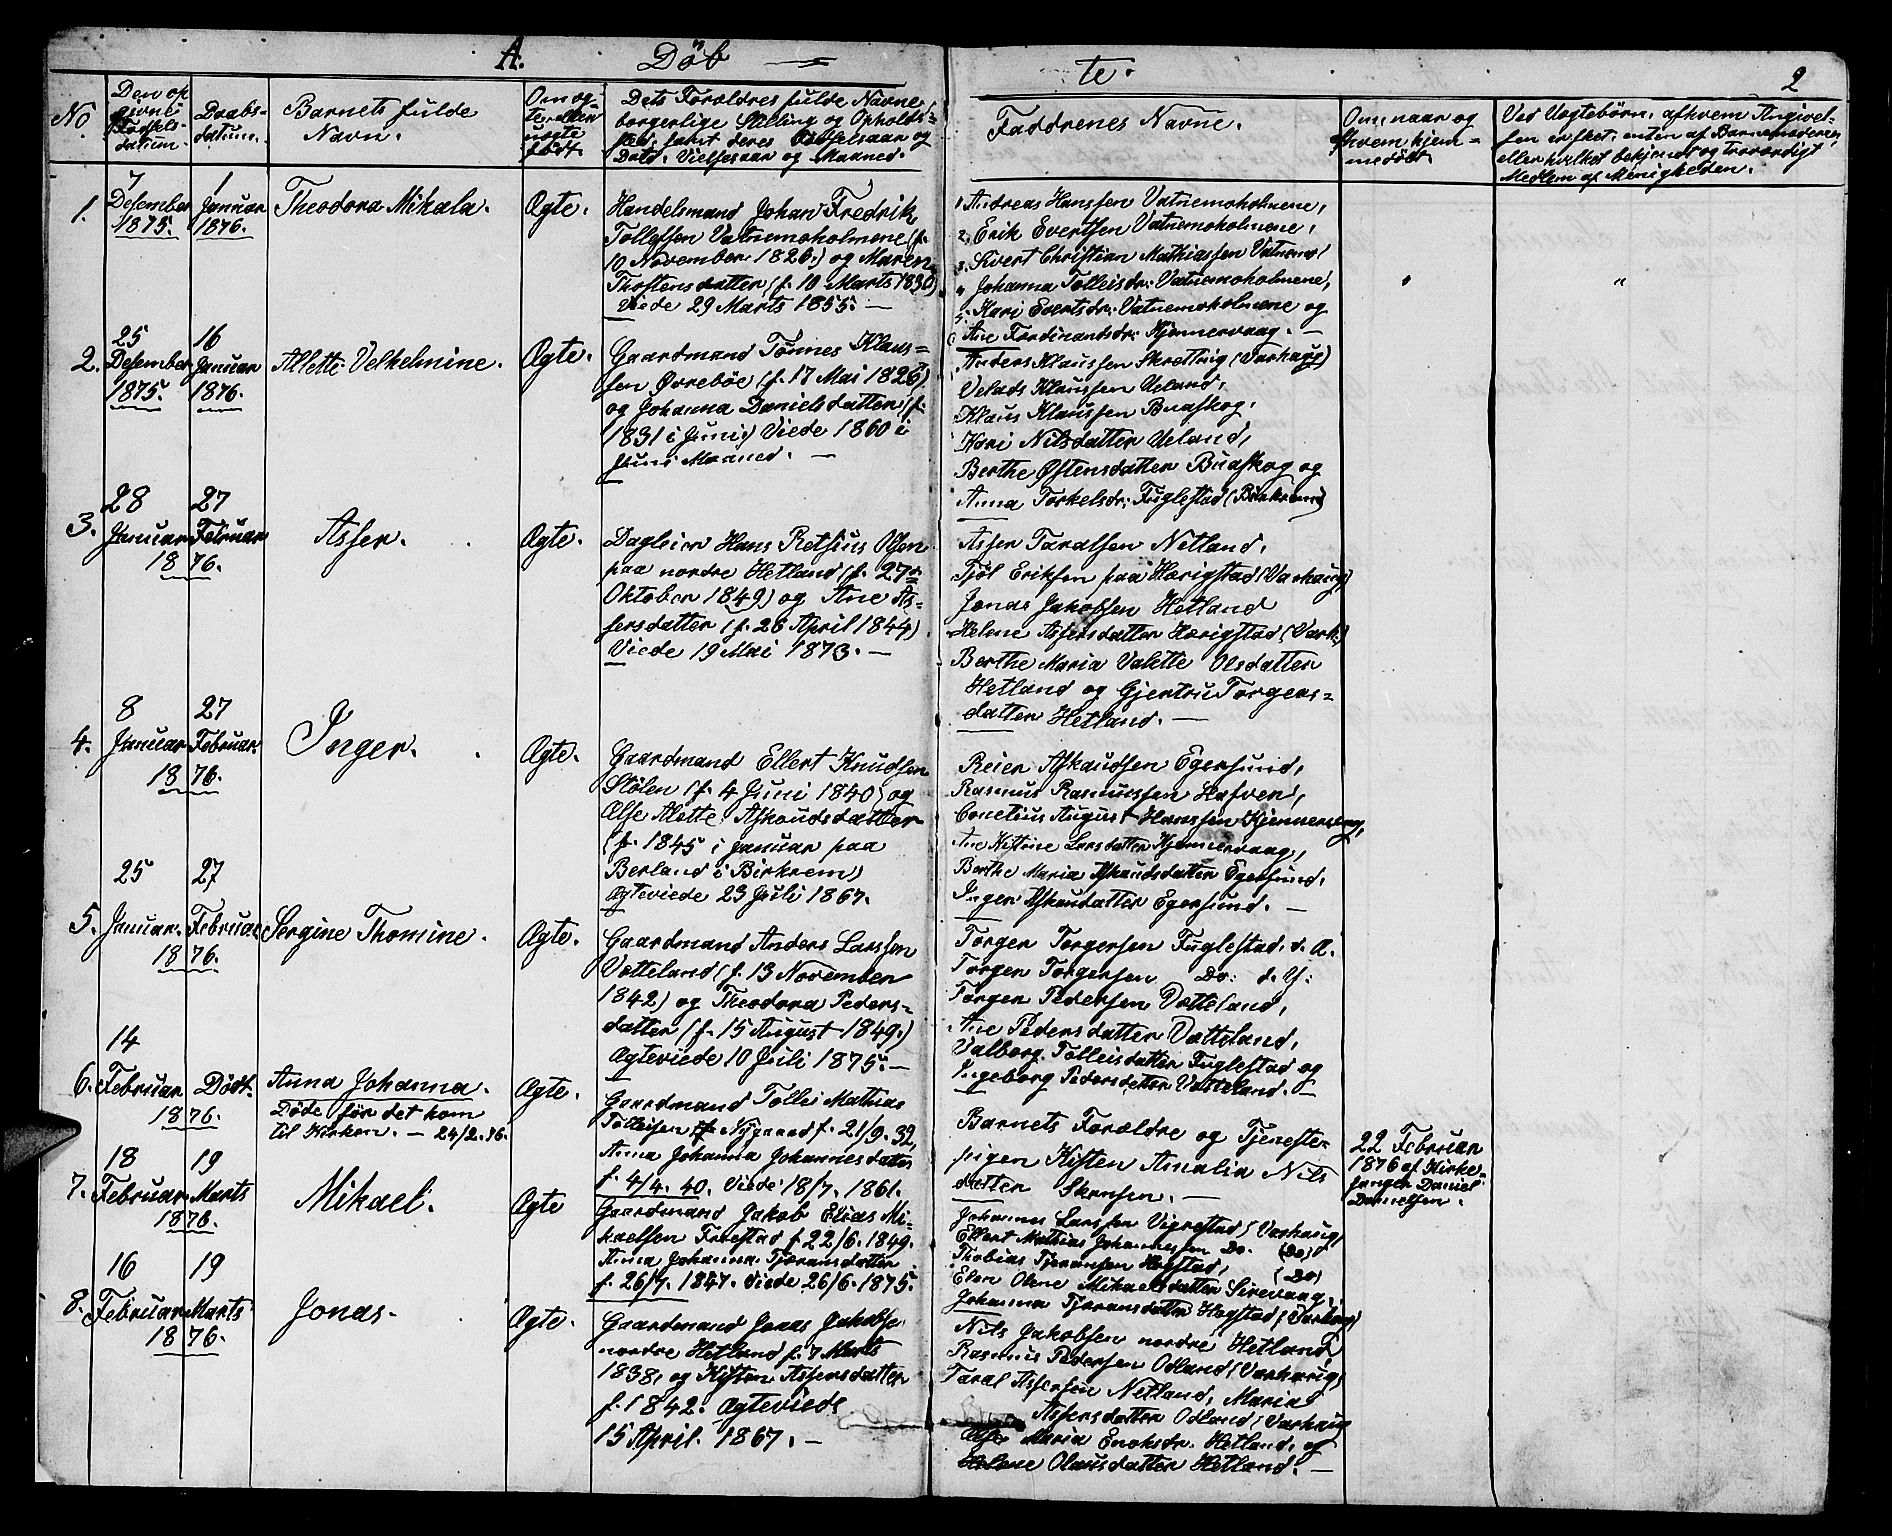 A. Döb te. 2
No
Den op
givne
Fødsels-
datum.
Daabs-
datum.
Barnets fulde
Navn.
Om æg-
te eller
uægte
født.
Dets Forældres fulde Navne,
borgerlige Stilling og Opholds-
sted, samt deres Fødselsaar og
Dato. Vielsesaar og Maaned.
Faddrenes Navne.
Om, naar og
af hvem hjem-
medøbt.
Ved Uægtebörn, af hvem Angivel-
sen er sket, enten af Barnemoderen,
eller hvilket bekjendt og troværdigt
Medlem af Menigheden.
1.
7
Desember
1875.
1
Januar
1876.
Theodora Mikala.
Ægte.
Handelsmand Johan Fredrik
Tollefsen Vatnemoholmene (f.
10 November 1826.) og Maren
Thostensdatter (f. 10 Marts 1830)
Viede 29 Marts 1855. —
1 Andreas Hanssen Vatnemoholmene,
2, Erik Evertsen Vatnemoholmene,
3. Sivert Christian Mathiassen Vatnemo,
4 Johanna Tolleisdr: Vatnemoholmene,
5. Kari Evertsdr: Vatnemoholmene og
6 Ane Ferdinandsdr: Kjønnervaag. —
2.
25
Desember
1875.
16
Januar
1876.
Allette Velhelmine.
Ægte.
Gaardmand Tønnes Klaus=
sen Øvrebøe (f. 17 Mai 1826)
og Johanna Danielsdatter (f.
1831 i Juni.) Viede 1860 i
Juni Maaned. —
Anders Klaussen Skretting (Varhaug)
Velads Klaussen Ueland,
Klaus Klaussen Buaskog,
Kari Nilsdatter Ueland,
Berthe Østensdatter Buaskog og
Anna Torkelsdr: Fuglestad (Birkrem)
3.
28
Januar
1876.
27
Februar
Asser.
Ægte.
Dagleier Hans Retsius Olsen
paa nordre Hetland (f. 27de
Oktober 1849) og Ane As=
sersdatter (f. 26 April 1844).
Viede 19 Mai 1873. —
Asser Taralsen Netland,
Tjöl Eriksen paa Hærigstad (Varhaug)
Jonas Jakobsen Hetland
Helene Assersdatter Hærigstad (Varh.)
Berthe Maria Valette Olsdatter
Hetland og Gjertru Torgers=
datter Hetland. —
4.
8
Januar
1876.
27
Februar.
Inger.
Ægte.
Gaardmand Ellert Knudsen
Stölen (f. 4 Juni 1840) og
Else Alette Askoudsdatter
(f. 1845 i Januar paa
Berland i Birkrem)
Ægteviede 23 Juli 1867.
Reier Askoudsen Egersund,
Rasmus Rasmussen Hafven,
Conelius August Hanssen Kjønnervaag,
Ane Kistine Larsdatter Kjønnervaag,
Berthe Maria Askoudsdatter Egersund,
Inger Askoudatter Egersund. —
5.
25
Januar.
1876.
27
Februar
Sergine Thomine.
Ægte.
Gaardmand Anders Larssen
Vætteland (f. 13 November
1842) og Theodora Peders-
datter (f. 15 August 1849.)
Ægteviede 10 Juli 1875. —
Torger Torgersen Fuglestad. d. Æ.
Torger Torgersen Do: d. Y:
Torger Pedersen Vætteland,
Ane Pedersdatter Vætteland,
Valborg Tolleisdatter Fuglestad og
Ingeborg Pedersdatter Vætteland. —
6.
14
Februar
1876.
Dödt.
Anna Johanna.
Döde för det kom
til Kirken. — 24/2. 76.
Ægte.
Gaardmand Tollei Mathias
Tolleisen Nygaard f. 21/9. 32,
Anna Johanna Johannesdatter
f. 4/4. 40. Viede 18/7. 1861.
Barnets Forældre og Tjeneste-
pigen Kisten Amalia Nils
datter Skrusen. —
22 Februar
1876 af Kirke-
sanger Daniel
Danielsen.
7.
18
Februar
1876.
19
Marts
Mikael.
Ægte
Gaardmand Jakob Elias Mi-
kaelsen Froestad f 22/6. 1849.
Anna Johanna Tjæransdatter
f. 26/7. 1847. Viede 26/6. 1875.
Johannes Larssen Vigrestad (Varhaug,
Ellert Mathias Johannessen Do. (Do)
Thobias Tjøransen Høgstad, (Do)
Elen Olene Mikaelsdatter Sirevaag,
Johanna Tjøransdatter Høgstad (Varhaug)
8.
16
Februar
1876.
19
Marts
Jonas.
Ægte.
Gaardmand Jonas Jakobse
nordre Hetland f. 7 Marts
1838, og Kisten Assersdatter
f. 1842. Ægteviede
15 April. 1867. —
Nils Jakobsen nordre Hetland,
Rasmus Pedersen Odland (Varhaug,
Taral Assersen Netland, Maria
Assersdatter Odland, Varhaug
Else Maria Enoksdr. Hetland, og
Helene Olausdatter Hetland. —